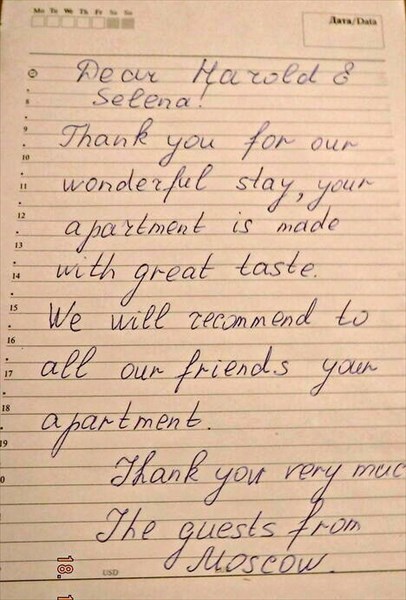 Mo Tu We Th Fr Sa Su
Дата/Data
Dear Harold &
8
Selena!
9
Thank you for our
10
11
wonderful stay, your
12
apartment is made
13
14
with great taste.
15
We will recommend to
16
17
all our friends your
18
apartment.
19
Thank you very muc
0
The guests from
Moscow.
18.
USD